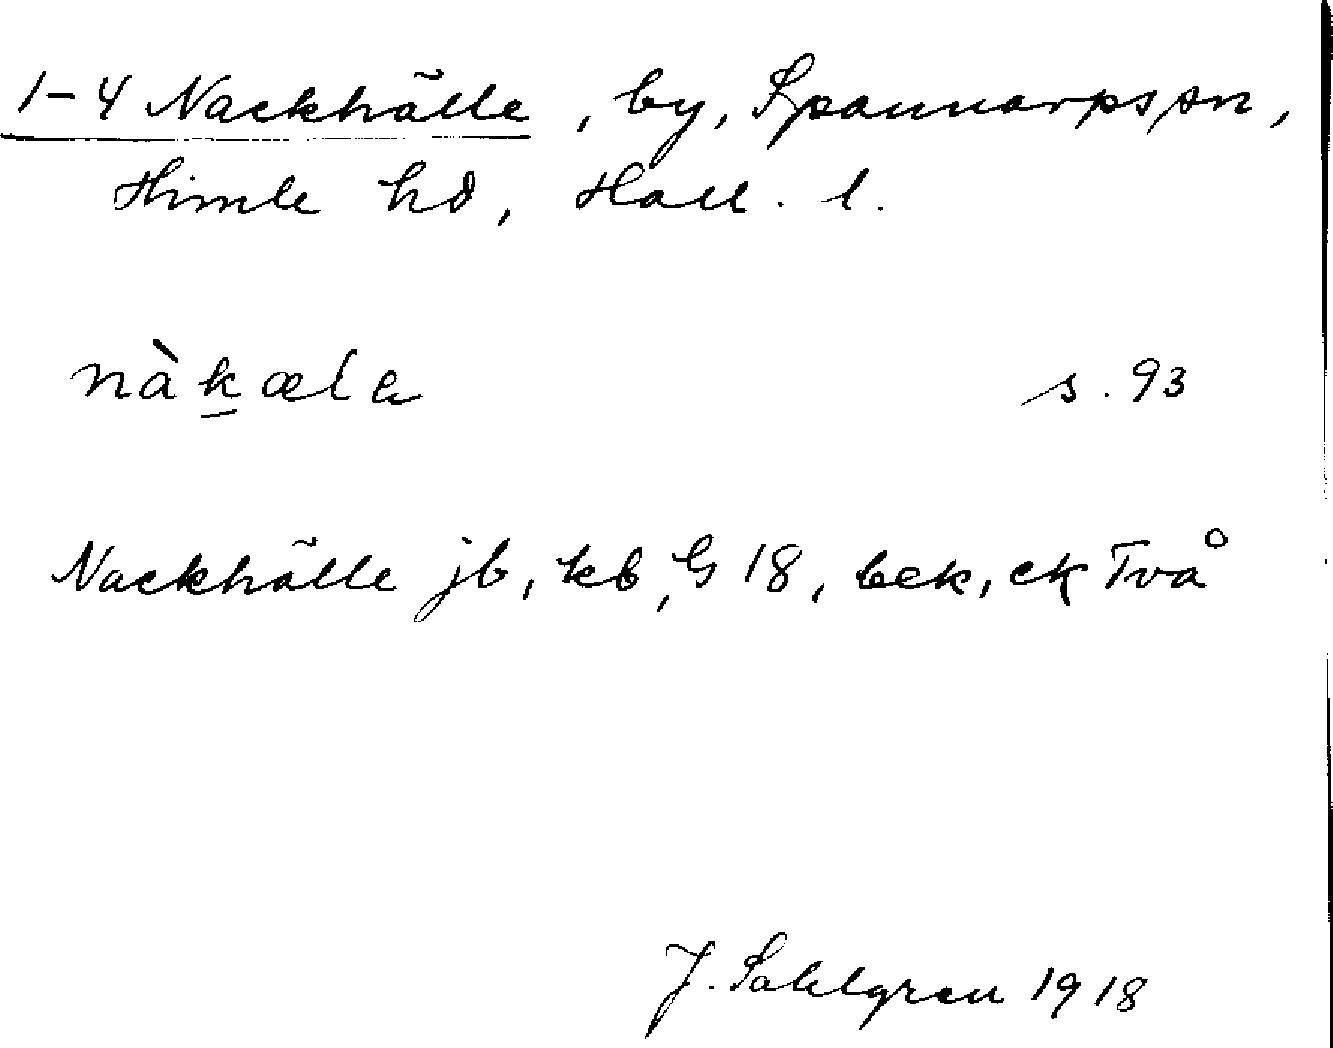 1-4 Nackhälle, by, Spannarps sn,
Himle hd, Hall. l.
nàkæla s. 93
Nackhälle jb, kb, G 18, bek, ek Två
J. Sahlgren 1918